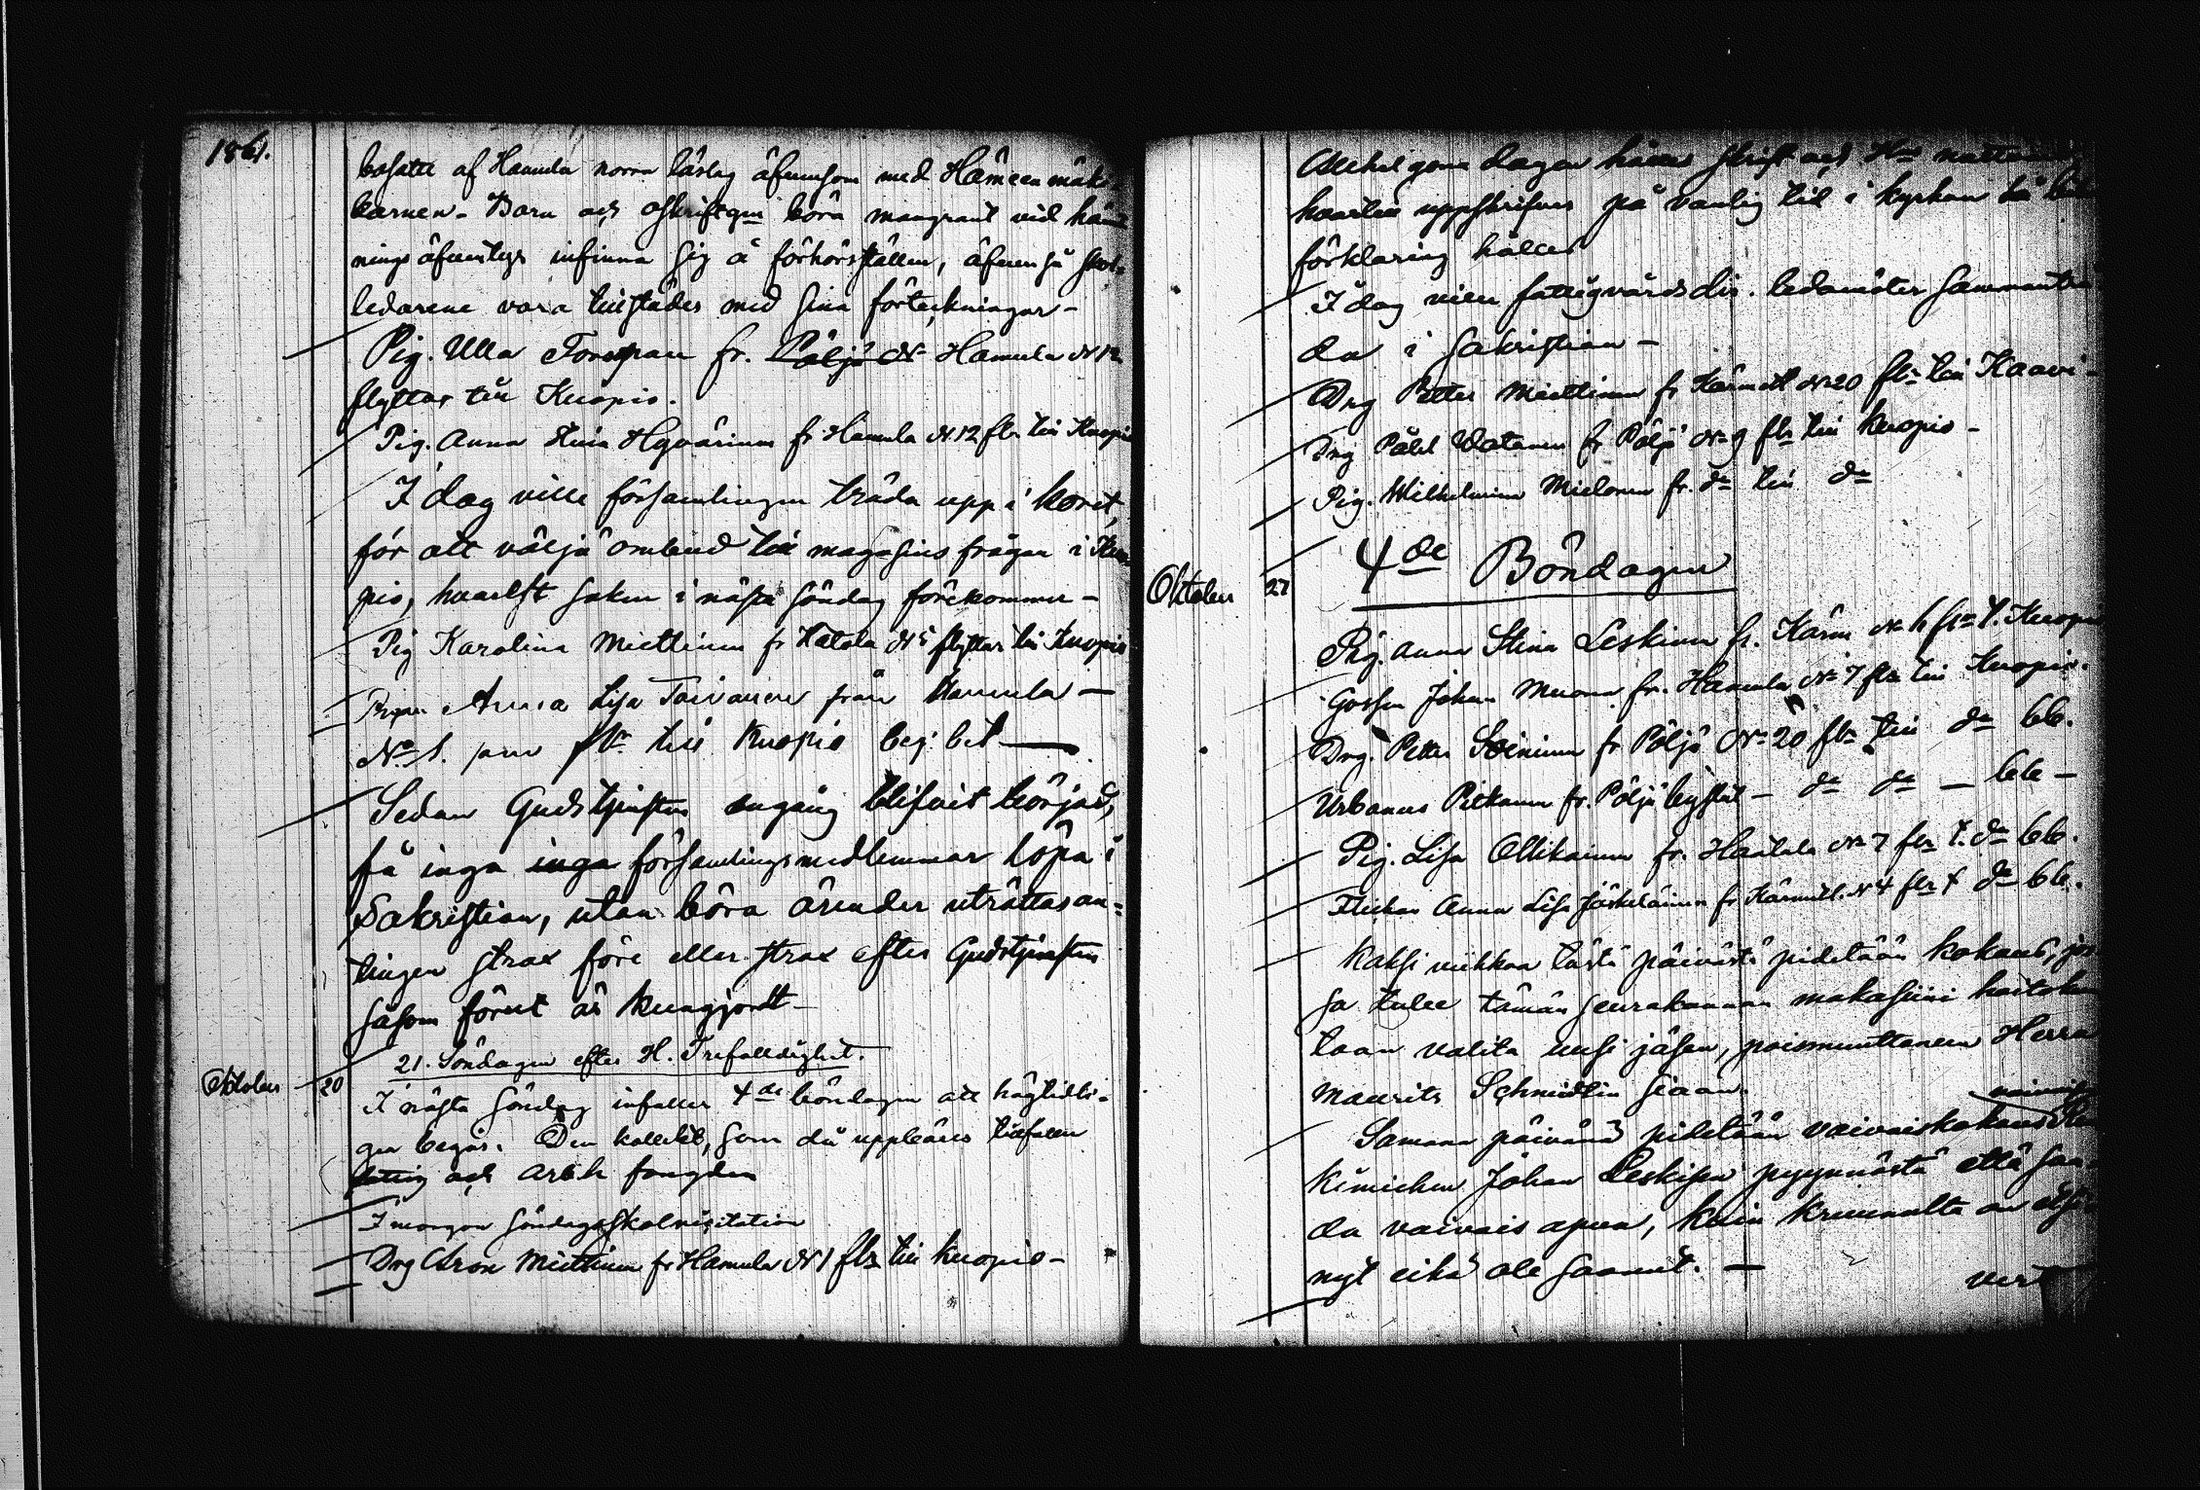 1861.
bosatte af Hamula norra läslag äfvensom med Hämeenmäki
barnen. Barn och oskriftgna böra mangrant vid häm
ningsäfventyr infinna sig å förhörsställen, äfvenså skol-
ledarene vara tillstädes med sina förteckningar -
Pig. Ulla fr. Pöljö N Hamula N 12
flyttar till Kuopio.
Pig. Anna Stina Hyvärinen fr Hamula N. 12 fltr till Kuopio
I dag ville församlingen träda upp i koret
för att välja ombud till magasins frågan i Kuo
pio, hvarest saken i nästa söndag förekommer -
Pig Karolina Miettinen fr Hatala N 5 flyttar till Kuopio
Pigan Anna Lisa Toivanen från Hamula -
No 1. fltr till Kuopio beg. bet -
Sedan Gudstjensten engång blifvit börjad,
få inga inga församlingsmedlemmar löpa i
Sakristian, utan böra ärender uträttas an-
tingen strax före eller strax efter Gudstjensten
såsom förut är kungjordt -
21. Söndagen efter H. Trefalldighet.
Oktober 20
I nästa söndag infaller 4de böndagen att högtidli-
gen begås. Den kollekt, som då uppbäres tillfaller
fattig och arb.h. fångden
I morgon söndagsskolvisitation
Drg Aron Miettinen fr Hamula N 1 fltr till Kuopio -
dagen hålles skrift och Hrens natt
hvartill uppskrifves på vanlig tid i kyrkan
förklaring hålles
I dag ville fattigvårdsdir. ledamöter sammanträ
da i Sakristian -
Drg Petter Miettinen fr Kärmet N 20 fltr till Kaavi -
Drg Påhl Vatanen fr Pöljö N 9 fltr till Kuopio -
Pig. Wilhelmina Mielonen fr. do till do
Oktober 27
4de Böndagen
Pig. Anna Stina Leskinen fr. Kärm N fltr t. Kuopio
Gossen Johan Muona fr. Hamula N 7 fltr till Kuopio.
Drg. Petter Soininen fr Pöljö N 20 fltr till do bb.
Urbanus Pitkänen fr. Pöljö by - do do - bb -
Pig. Lisa Ollikainen fr. Haatala N 7 fltr t. do bb.
Flickan Anna Lisa Jääskeläinen fr Kärmet. N 4 fltr t do bb.
Kaksi viikkoa tästä päivästä pidetään kokous, jos
sa tulee tämän seurakunnan makasiini hoitokun
taan valita uusi jäsen, poismuuttaneen Herra
Maurits Schmidtin siaan.
Samana päivänä pidetään vaivaiskokous
Johan Leskisen pyynnöstä että saa
da vaivais apua, kuin kruunulta on
nyt eikä ole saanut. -